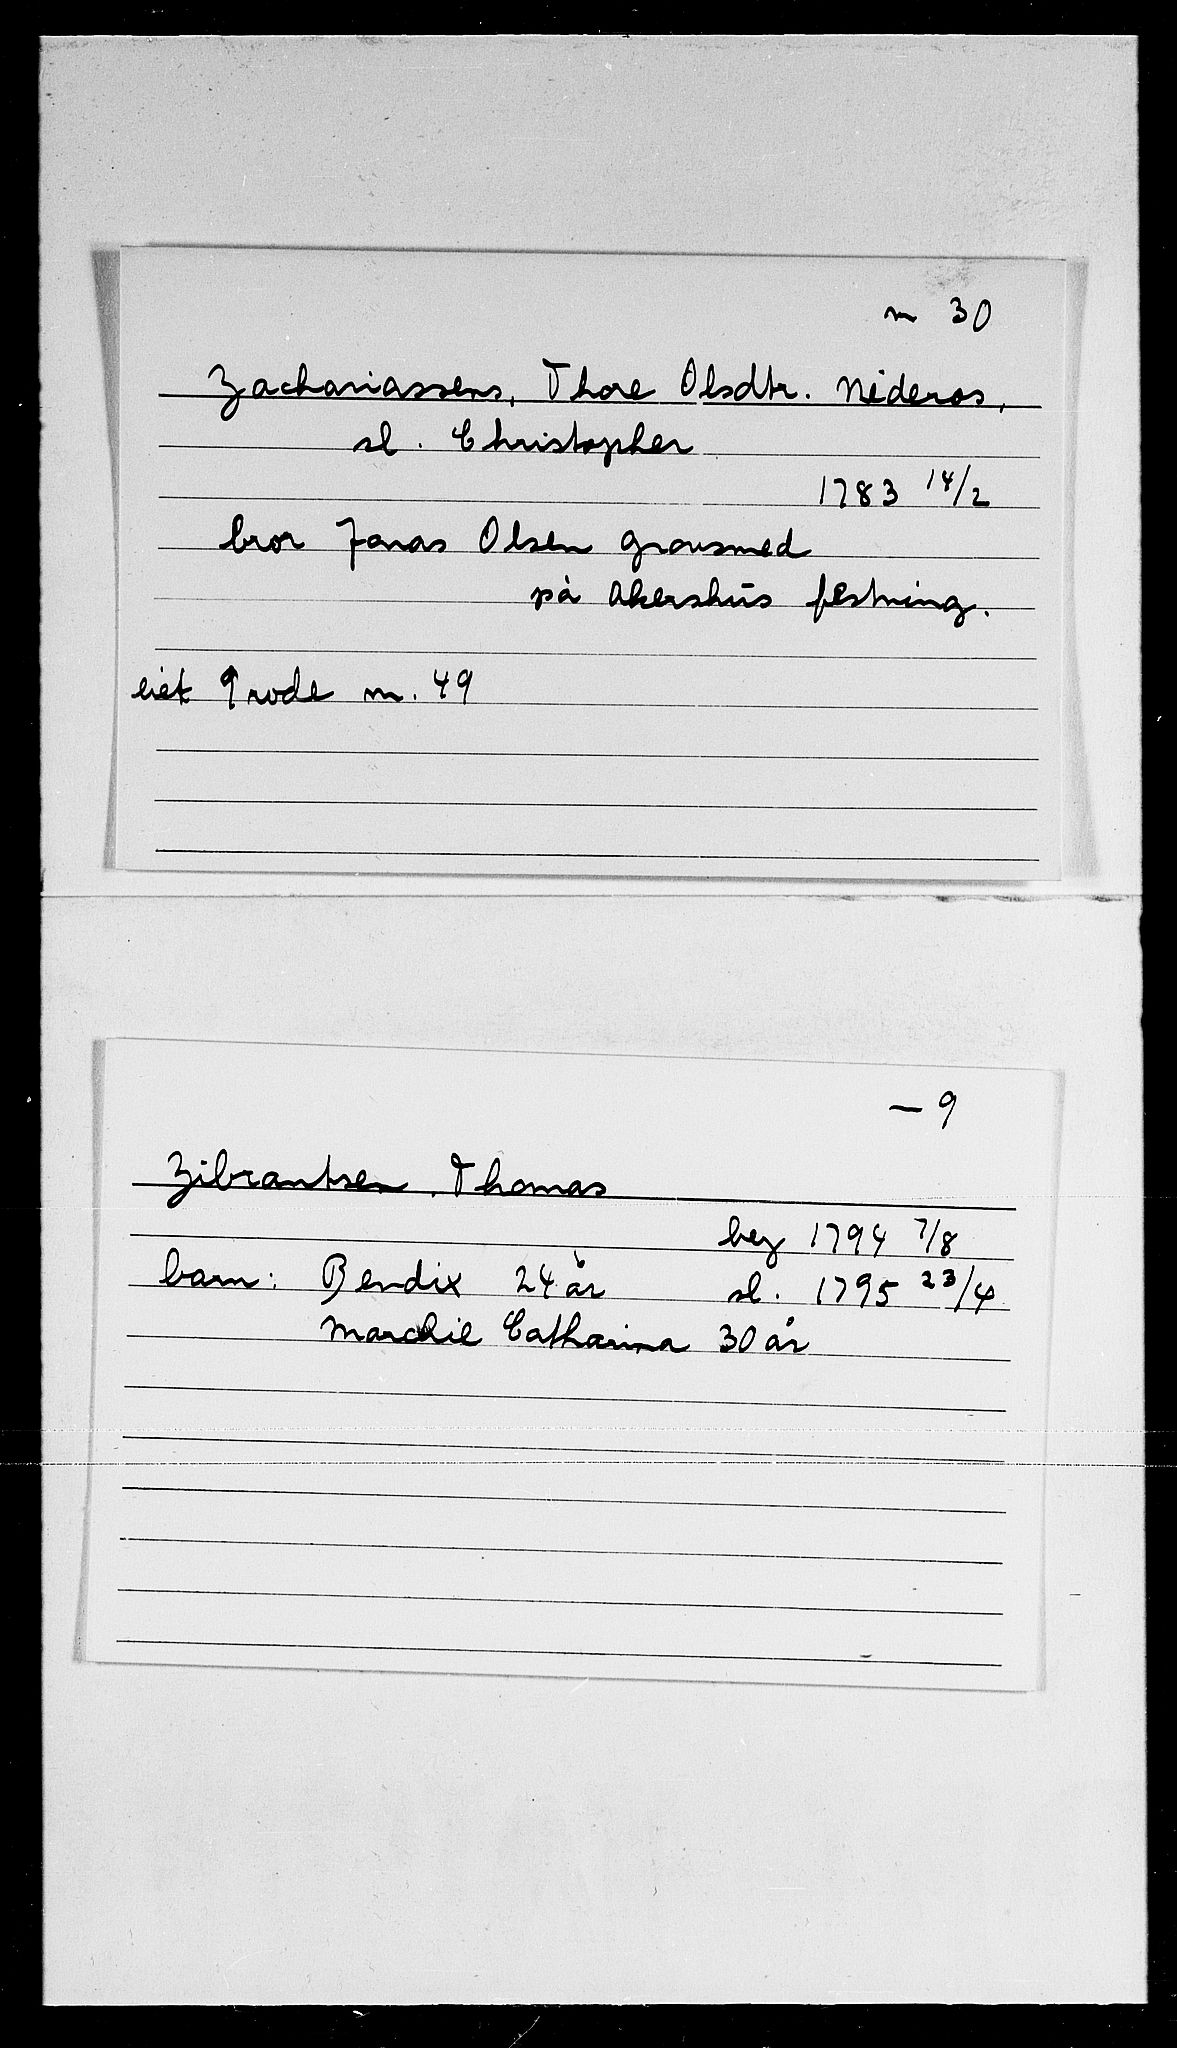 m 30
Zachariassens, Thore Olsdtr. Nideros,
sl. Christopher
1783 14/2
bror Jonas Olsen grovsmed
på Akershus festning.
eiet 9 rode m. 49
— 9
Zibrantsen, Thomas
beg 1794 7/8
barn: Bendix 24 år sl. 1795 23/4
Marchie Catharina 30 år